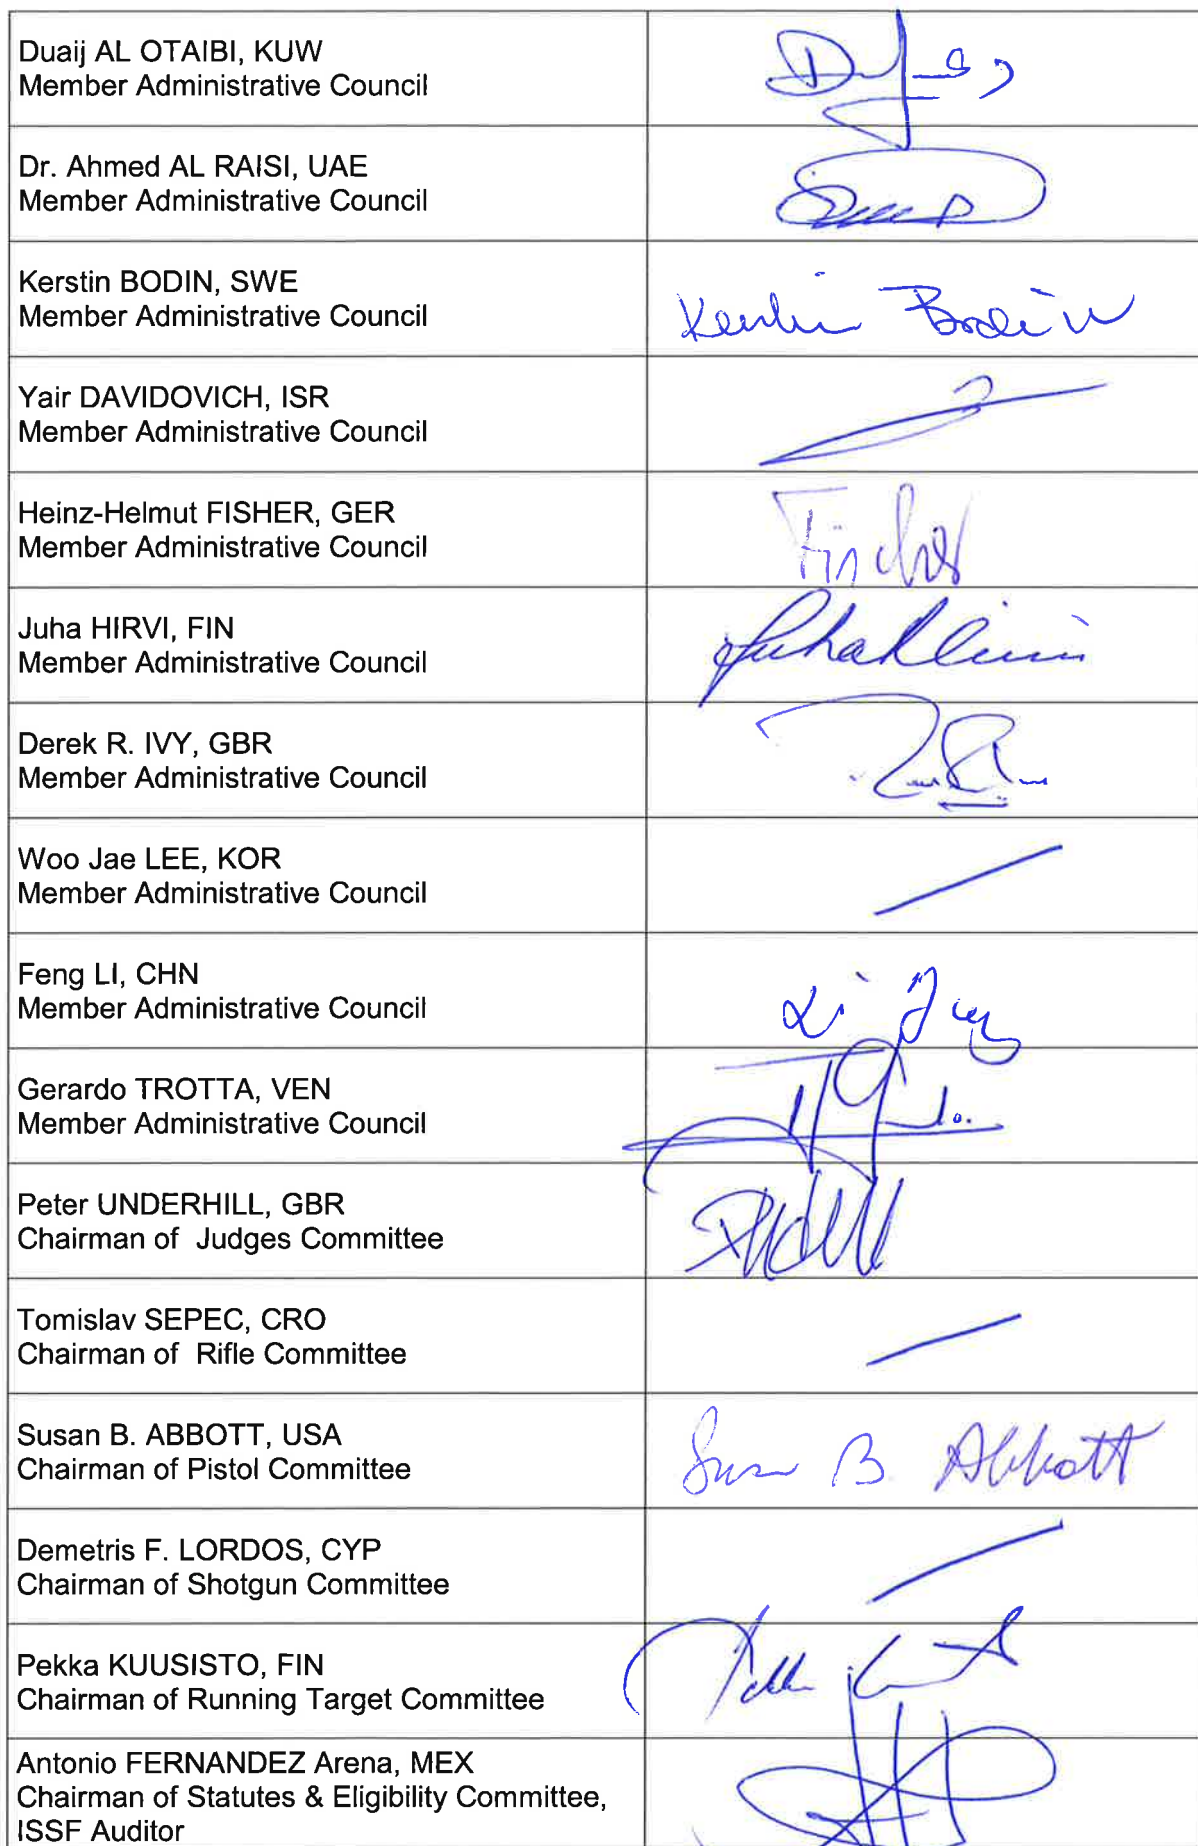 Duaij AL OTAIBI, KUW
Member Administrative Council
Dr. Ahmed AL RAISI, UAE
Member Administrative Council
Kerstin BODIN, SWE
Member Administrative Council
Kerstin Bodin
Yair DAVIDOVICH, ISR
Member Administrative Council
Heinz-Helmut FISHER, GER
Member Administrative Council
Fischer
Juha HIRVI, FIN
Member Administrative Council
Juha Hirvi
Derek R. IVY, GBR
Member Administrative Council
Woo Jae LEE, KOR
Member Administrative Council
Feng LI, CHN
Member Administrative Council
Li Feng
Gerardo TROTTA, VEN
Member Administrative Council
Peter UNDERHILL, GBR
Chairman of Judges Committee
Tomislav SEPEC, CRO
Chairman of Rifle Committee
Susan B. ABBOTT, USA
Chairman of Pistol Committee
Susan B Abbott
Demetris F. LORDOS, CYP
Chairman of Shotgun Committee
Pekka KUUSISTO, FIN
Chairman of Running Target Committee
Antonio FERNANDEZ Arena, MEX
Chairman of Statutes & Eligibility Committee,
ISSF Auditor